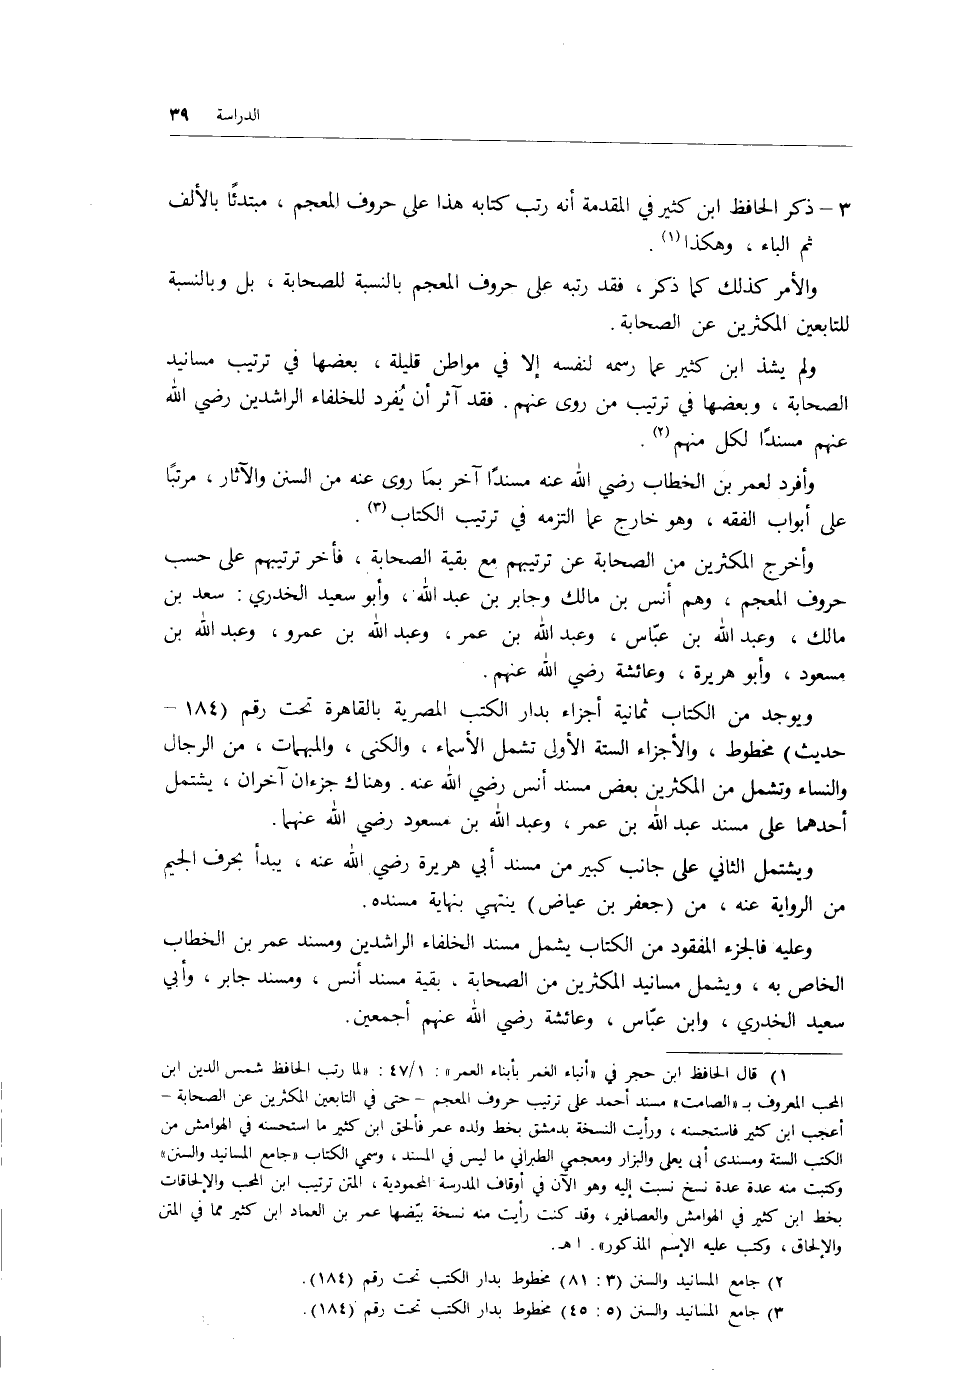 الدراسة ٣٩
٣ - ذكر الحافظ ابن كثير في المقدمة أنه رتب كتابه هذا على حروف المعجم ، مبتدئًا بالألف
ثم الباء ، وهكذا(١) .
والأمر كذلك كما ذكر ، فقد رتبه على حروف المعجم بالنسبة للصحابة ، بل وبالنسبة
للتابعين المكثرين عن الصحابة .
ولم يشذ ابن كثير عما رسمه لنفسه إلا في مواطن قليلة ، بعضها في ترتيب مسانيد
الصحابة ، وبعضها في ترتيب من روى عنهم . فقد آثر أن يُفرد للخلفاء الراشدين رضي الله
عنهم مسندًا لكل منهم(٢) .
وأفرد لعمر بن الخطاب رضي الله عنه مسندًا آخر بمَا روى عنه من السنن والآثار ، مرتبًا
على أبواب الفقه ، وهو خارج عما التزمه في ترتيب الكتاب(٣) .
وأخرج المكثرين من الصحابة عن ترتيبهم مع بقية الصحابة ، فأخر ترتيبهم على حسب
حروف المعجم ، وهم أنس بن مالك وجابر بن عبد الله ، وأبو سعيد الخدري : سعد بن
مالك ، وعبد الله بن عبّاس ، وعبد الله بن عمر ، وعبد الله بن عمرو ، وعبد الله بن
مسعود ، وأبو هريرة ، وعائشة رضي الله عنهم .
ويوجد من الكتاب ثمانية أجزاء بدار الكتب المصرية بالقاهرة تحت رقم (١٨٤ -
حديث) مخطوط ، والأجزاء الستة الأولى تشمل الأسماء ، والكنى ، والمبهمات ، من الرجال
والنساء وتشمل من المكثرين بعض مسند أنس رضي الله عنه . وهناك جزءان آخران ، يشتمل
أحدهما على مسند عبد الله بن عمر ، وعبد الله بن مسعود رضي الله عنهما .
ويشتمل الثاني على جانب كبير من مسند أبي هريرة رضي الله عنه ، يبدأ بحرف الجيم
من الرواية عنه ، من (جعفر بن عياض) ينتهي بنهاية مسنده .
وعليه فالجزء المفقود من الكتاب يشمل مسند الخلفاء الراشدين ومسند عمر بن الخطاب
الخاص به ، ويشمل مسانيد المكثرين من الصحابة . بقية مسند أنس ، ومسند جابر ، وأبي
سعيد الخدري ، وابن عبّاس ، وعائشة رضي الله عنهم أجمعين .
١) قال الحافظ ابن حجر في «أنباء الغمر بأبناء العمر» : ٤٧/١ : «لما رتب الحافظ شمس الدين ابن
المحب المعروف بـ «الصامت» مسند أحمد على ترتيب حروف المعجم - حتى في التابعين المكثرين عن الصحابة -
أعجب ابن كثير فاستحسنه ، ورأيت النسخة بدمشق بخط ولده عمر فألحق ابن كثير ما استحسنه في الهوامش من
الكتب الستة ومسندى أبى يعلى والبزار ومعجمي الطبراني ما ليس في المسند ، وسمي الكتاب «جامع المسانيد والسنن»
وكتبت منه عدة عدة نسخ نسبت إليه وهو الآن في أوقاف المدرسة المحمودية ، المتن ترتيب ابن المحب والإلحاقات
بخط ابن كثير في الهوامش والعصافير ، وقد كنت رأيت منه نسخة بيّضها عمر بن العماد ابن كثير مما في المتن
والإلحاق ، وكتب عليه الإسم المذكور» . ا هـ .
٢) جامع المسانيد والسنن (٣ : ٨١) مخطوط بدار الكتب تحت رقم (١٨٤) .
٣) جامع المسانيد والسنن (٥ : ٤٥) مخطوط بدار الكتب تحت رقم (١٨٤) .